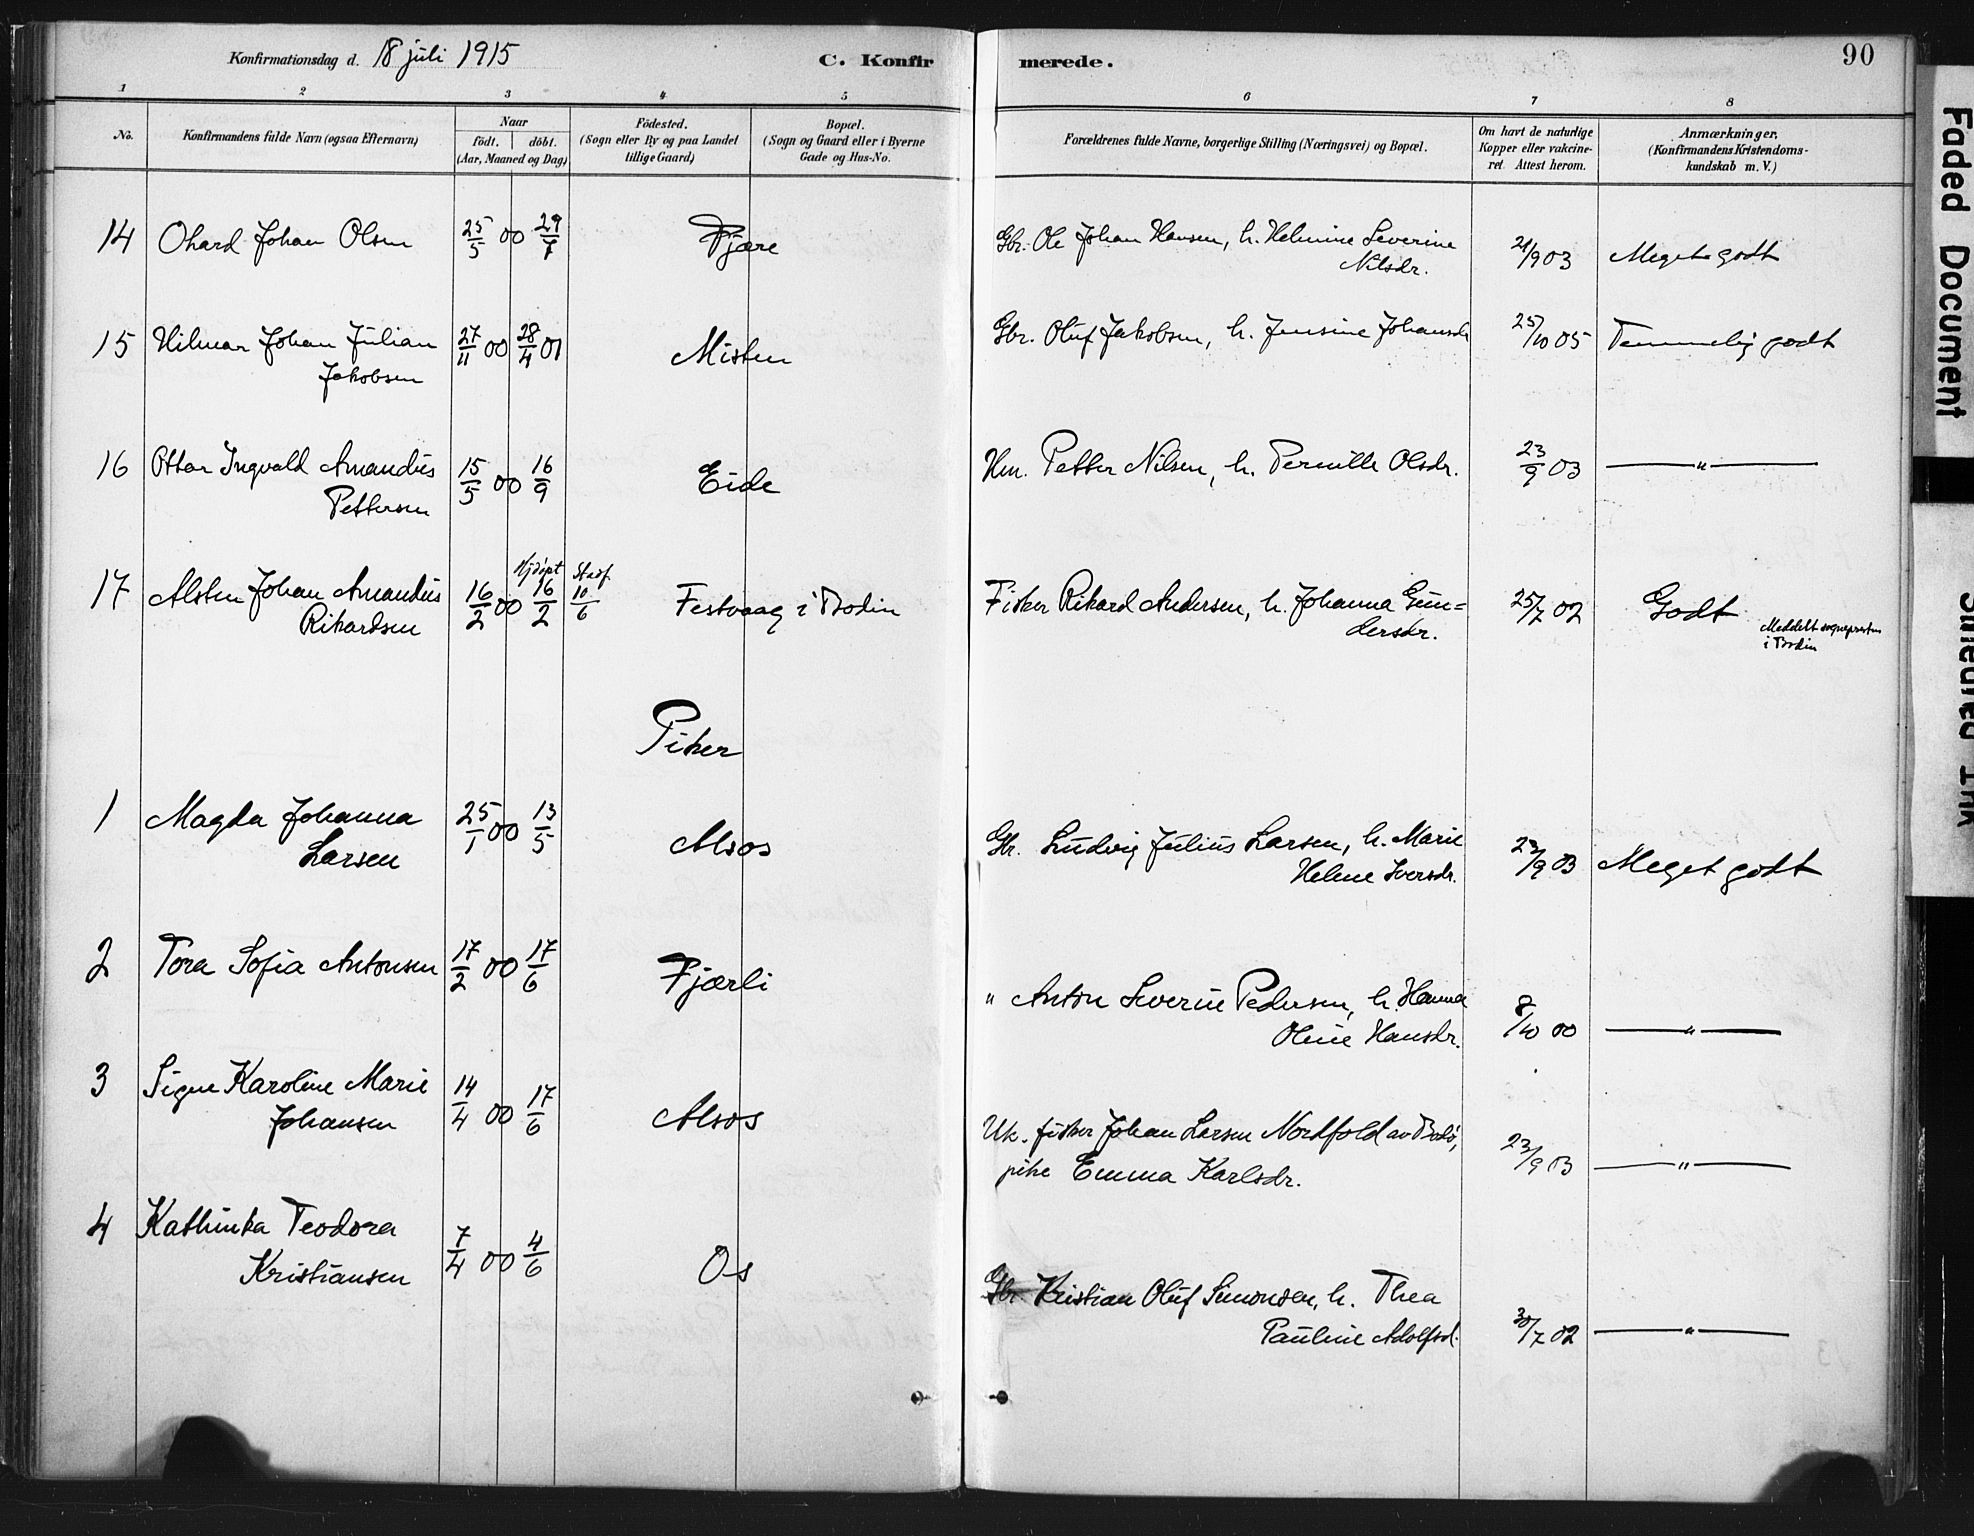 Konfirmationsdag d. 18 juli 1915
C. Konfir merede.
90
1 2 3 4 5 6 7 8
No.
Konfirmandens fulde Navn (ogsaa Efternavn)
Naar
födt. döbt.
(Aar, Maaned og Dag)
Födested.
(Sogn eller By og paa Landet
tillige Gaard)
Bopæl.
(Sogn og Gaard eller i Byerne
Gade og Hus-No.
Forældrenes fulde Navne, borgerlige Stilling (Næringsvei) og Bopæl.
Om havt de naturlige
Kopper eller vakcine-
ret. Attest herom.
Anmærkninger,
(Konfirmandens Kristendoms-
kundskab m. V.)
14 Ohard Johan Olsen 25/5 00 29/7 Fjære Gbr. Ole Johan Hansen, h. Helmine Severine 21/9 03 Meget godt
Nilsdr.
15 Hilmar Johan Julian 27/11 00 28/4 01 Misten Gbr. Oluf Jakobsen, h. Jensine Johansdr 25/10 05 Temmelig godt
Jakobsen
16 Ottar Ingvald Amandus 15/5 00 16/9 Eide Hm. Petter Nilsen, h. Pernille Olsdr. 23/9 03 — " —
Pettersen
17 Alsten Johan Amandus 16/2 00 Hjdøpt 16/2 Stadf. 10/6 Festvaag i Bodin Fisker Rikard Andersen, h. Johanna Gun= 25/7 02 Godt
Rikardsen
dersdr.
Meddelt sognepresten
i Bodin
Piker
1 Magda Johanna 25/1 00 13/5 Alsos Gbr. Ludvig Julius Larsen, h. Marie 23/9 03 Meget godt
Larsen
Helene Iversdr.
2 Tora Sofia Antonsen 17/2 00 17/6 Fjærli " Anton Severin Pedersen, h. Hanna 8/10 00 — " —
Oline Hansdr.
3 Signe Karoline Marie 14/4 00 17/6 Alsos Uk. fisker Johan Larsen Nordfold av Bodø, 23/9 03 — " —
Johansen
pike Emma Karlsdr.
4 Kathinka Teodora 7/4 00 4/6 Os Gbr. Kristian Oluf Simonsen, h. Thea 30/7 02 — " —
Kristiansen
Pauline Adolfsd.
Faded Document